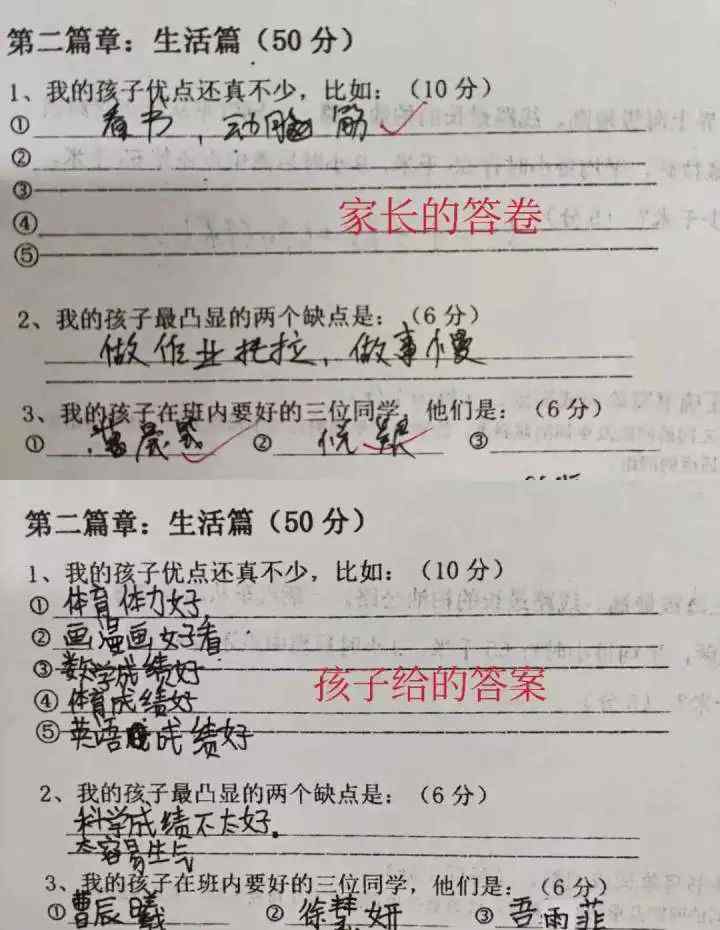 第二篇章：生活篇（50分）
1、我的孩子优点还真不少，比如：（10分）
① 看书，动脑筋
②
③
④
⑤
家长的答卷
2、我的孩子最凸显的两个缺点是：（6分）
做作业拖拉，做事慢
3、我的孩子在班内要好的三位同学，他们是：（6分）
① 曹晨曦 ② 倪 ③
第二篇章：生活篇（50分）
1、我的孩子优点还真不少，比如：（10分）
① 体育体力好
② 画漫画好看
③ 数学成绩好
④ 体育成绩好
⑤ 英语成绩好
孩子给的答案
2、我的孩子最凸显的两个缺点是：（6分）
科学成绩不太好。
太容易生气
3、我的孩子在班内要好的三位同学，他们是：（6分）
① 曹辰曦 ② 徐慧妍 ③ 吾雨菲